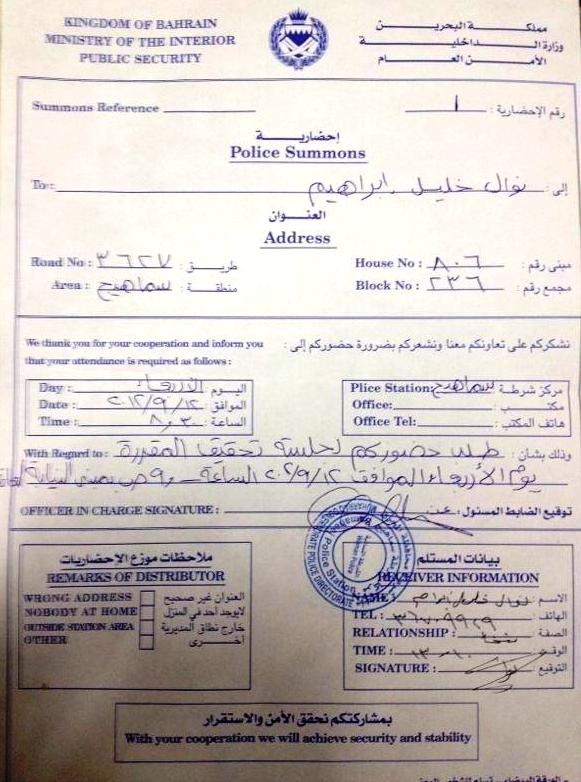 KINGDOM OF BAHRAIN
MINISTRY OF THE INTERIOR
PUBLIC SECURITY
مملكـة البحريـن
وزارة الـداخليـة
الأمـن العـام
Summons Reference
رقم الإحضارية : ١
إحضاريـة
Police Summons
To: نوال خليل ابراهيم إلى :
العنـوان
Address
Road No : ٣٦٢٧ طريـق :
House No : ٨٠٦ مبنى رقم :
Area : سماهيج منطقـة :
Block No : ٢٣٦ مجمع رقم :
We thank you for your cooperation and inform you
that your attendance is required as follows :
نشكركم على تعاونكم معنا ونشعركم بضرورة حضوركم إلى :
Day : الأربعاء اليـوم :
Date : ٢٠١٢/٩/١٢ الموافق :
Time : ٨,٣٠ الساعة :
Plice Station: سماهيج مركز شرطة
Office: مكتـب :
Office Tel: هاتف المكتب :
With Regard to : وذلك بشأن : طلب حضوركم لجلسة تحقيق المقررة
يوم الأربعاء الموافق ٢٠١٢/٩/١٢ الساعة ص بمبنى النيابة
OFFICER IN CHARGE SIGNATURE : توقيع الضابط المسئول :
ملاحظات موزع الإحضاريات
REMARKS OF DISTRIBUTOR
WRONG ADDRESS العنوان غير صحيح
NOBODY AT HOME لايوجد أحد في المنزل
OUTSIDE STATION AREA خارج نطاق المديرية
OTHER أخـرى
بيانات المستلم
RECEIVER INFORMATION
NAME : نوال خليل ابراهيم الاسم :
TEL : الهاتف :
RELATIONSHIP : الصفة :
TIME : الوقت :
SIGNATURE : التوقيع :
بمشاركتكم نحقق الأمن والاستقرار
With your cooperation we will achieve security and stability